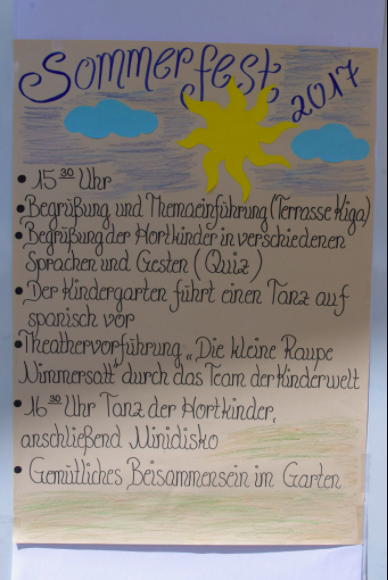 Sommerfest 2017
• 15³⁰ Uhr
• Begrüßung und Themaeinführung (Terrasse Kiga)
• Begrüßung der Hortkinder in verschiedenen
Sprachen und Gesten (Quiz)
• Der Kindergarten führt einen Tanz auf
spanisch vor
• Theathervorführung „Die kleine Raupe
Nimmersatt" durch das Team der Kinderwelt
• 16³⁰ Uhr Tanz der Hortkinder,
anschließend Minidisko
• Gemütliches Beisammensein im Garten